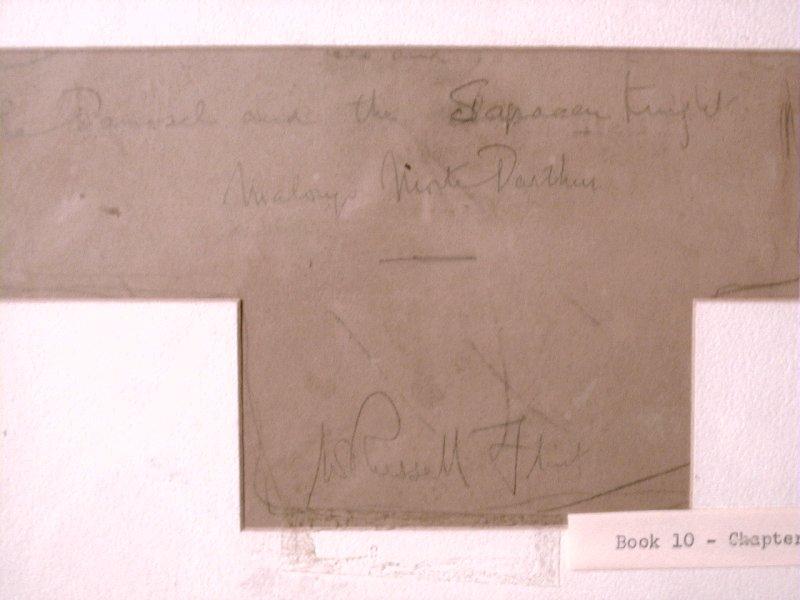 and
Damosel and the Saracen Knight
Malorys Morte Darthur
W Russell Flint
Book 10 - Chapter